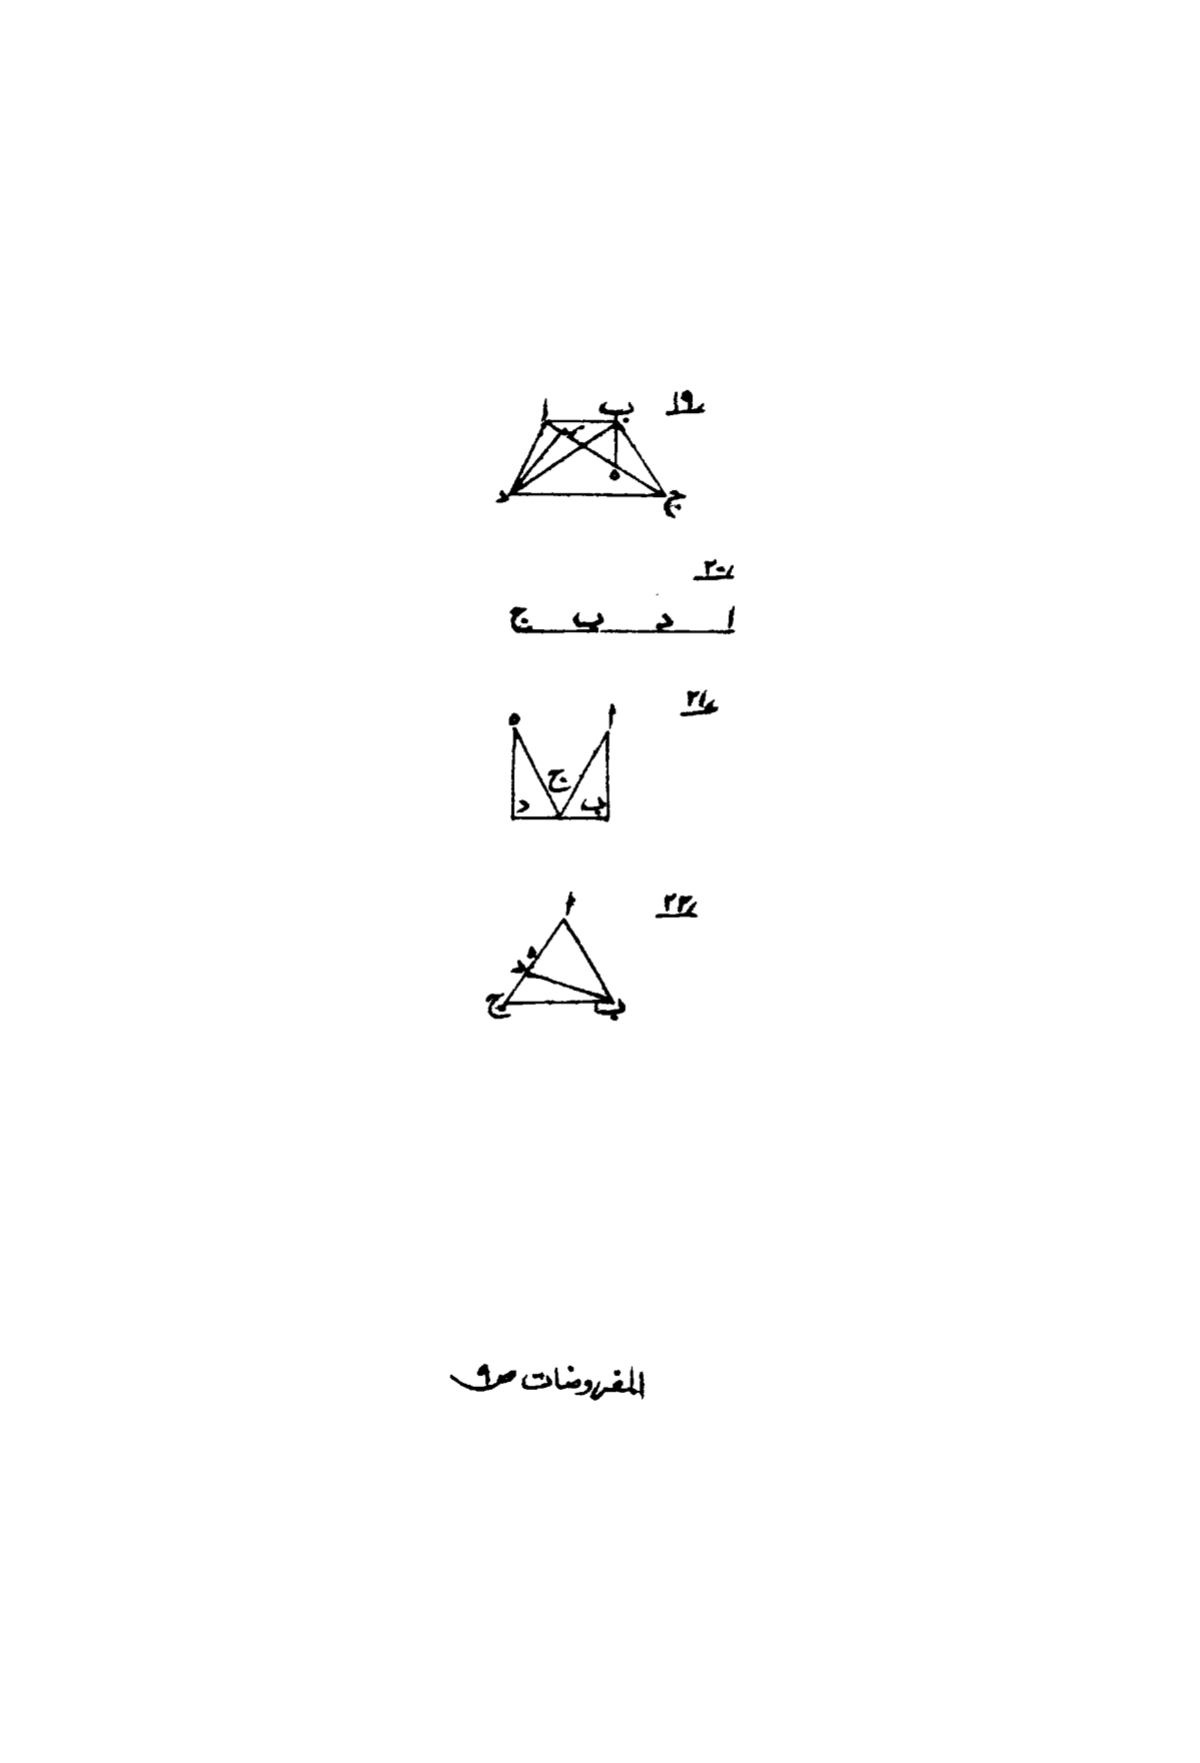 ١٩
ا ب
ر
ه
د ج
٢٠
ا د ب ج
٢١
ا ه
ج
ب د
٢٢
ا
ه
د
ج ب
المفروضات ص٩